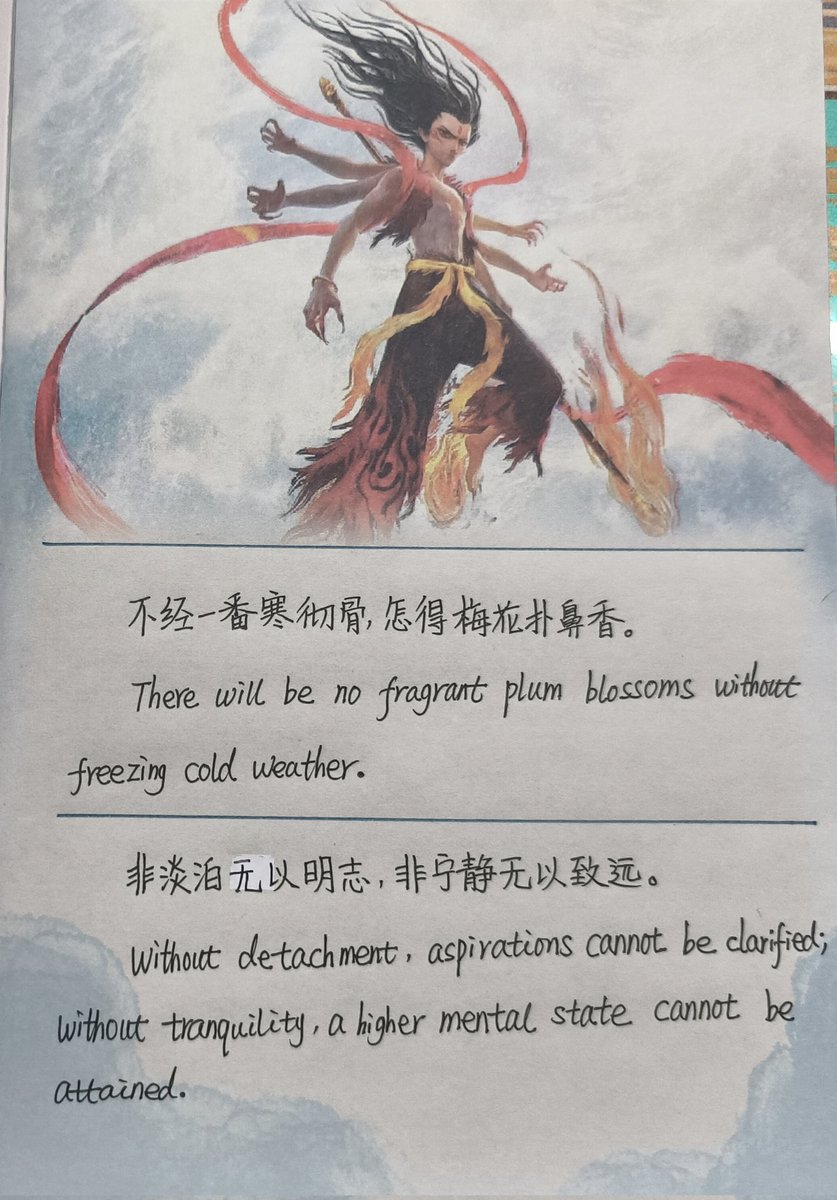 不经一番寒彻骨,怎得梅花扑鼻香。
There will be no fragrant plum blossoms without
freezing cold weather.
非淡泊无以明志,非宁静无以致远。
Without detachment, aspirations cannot be clarified;
without tranquility, a higher mental state cannot be
attained.